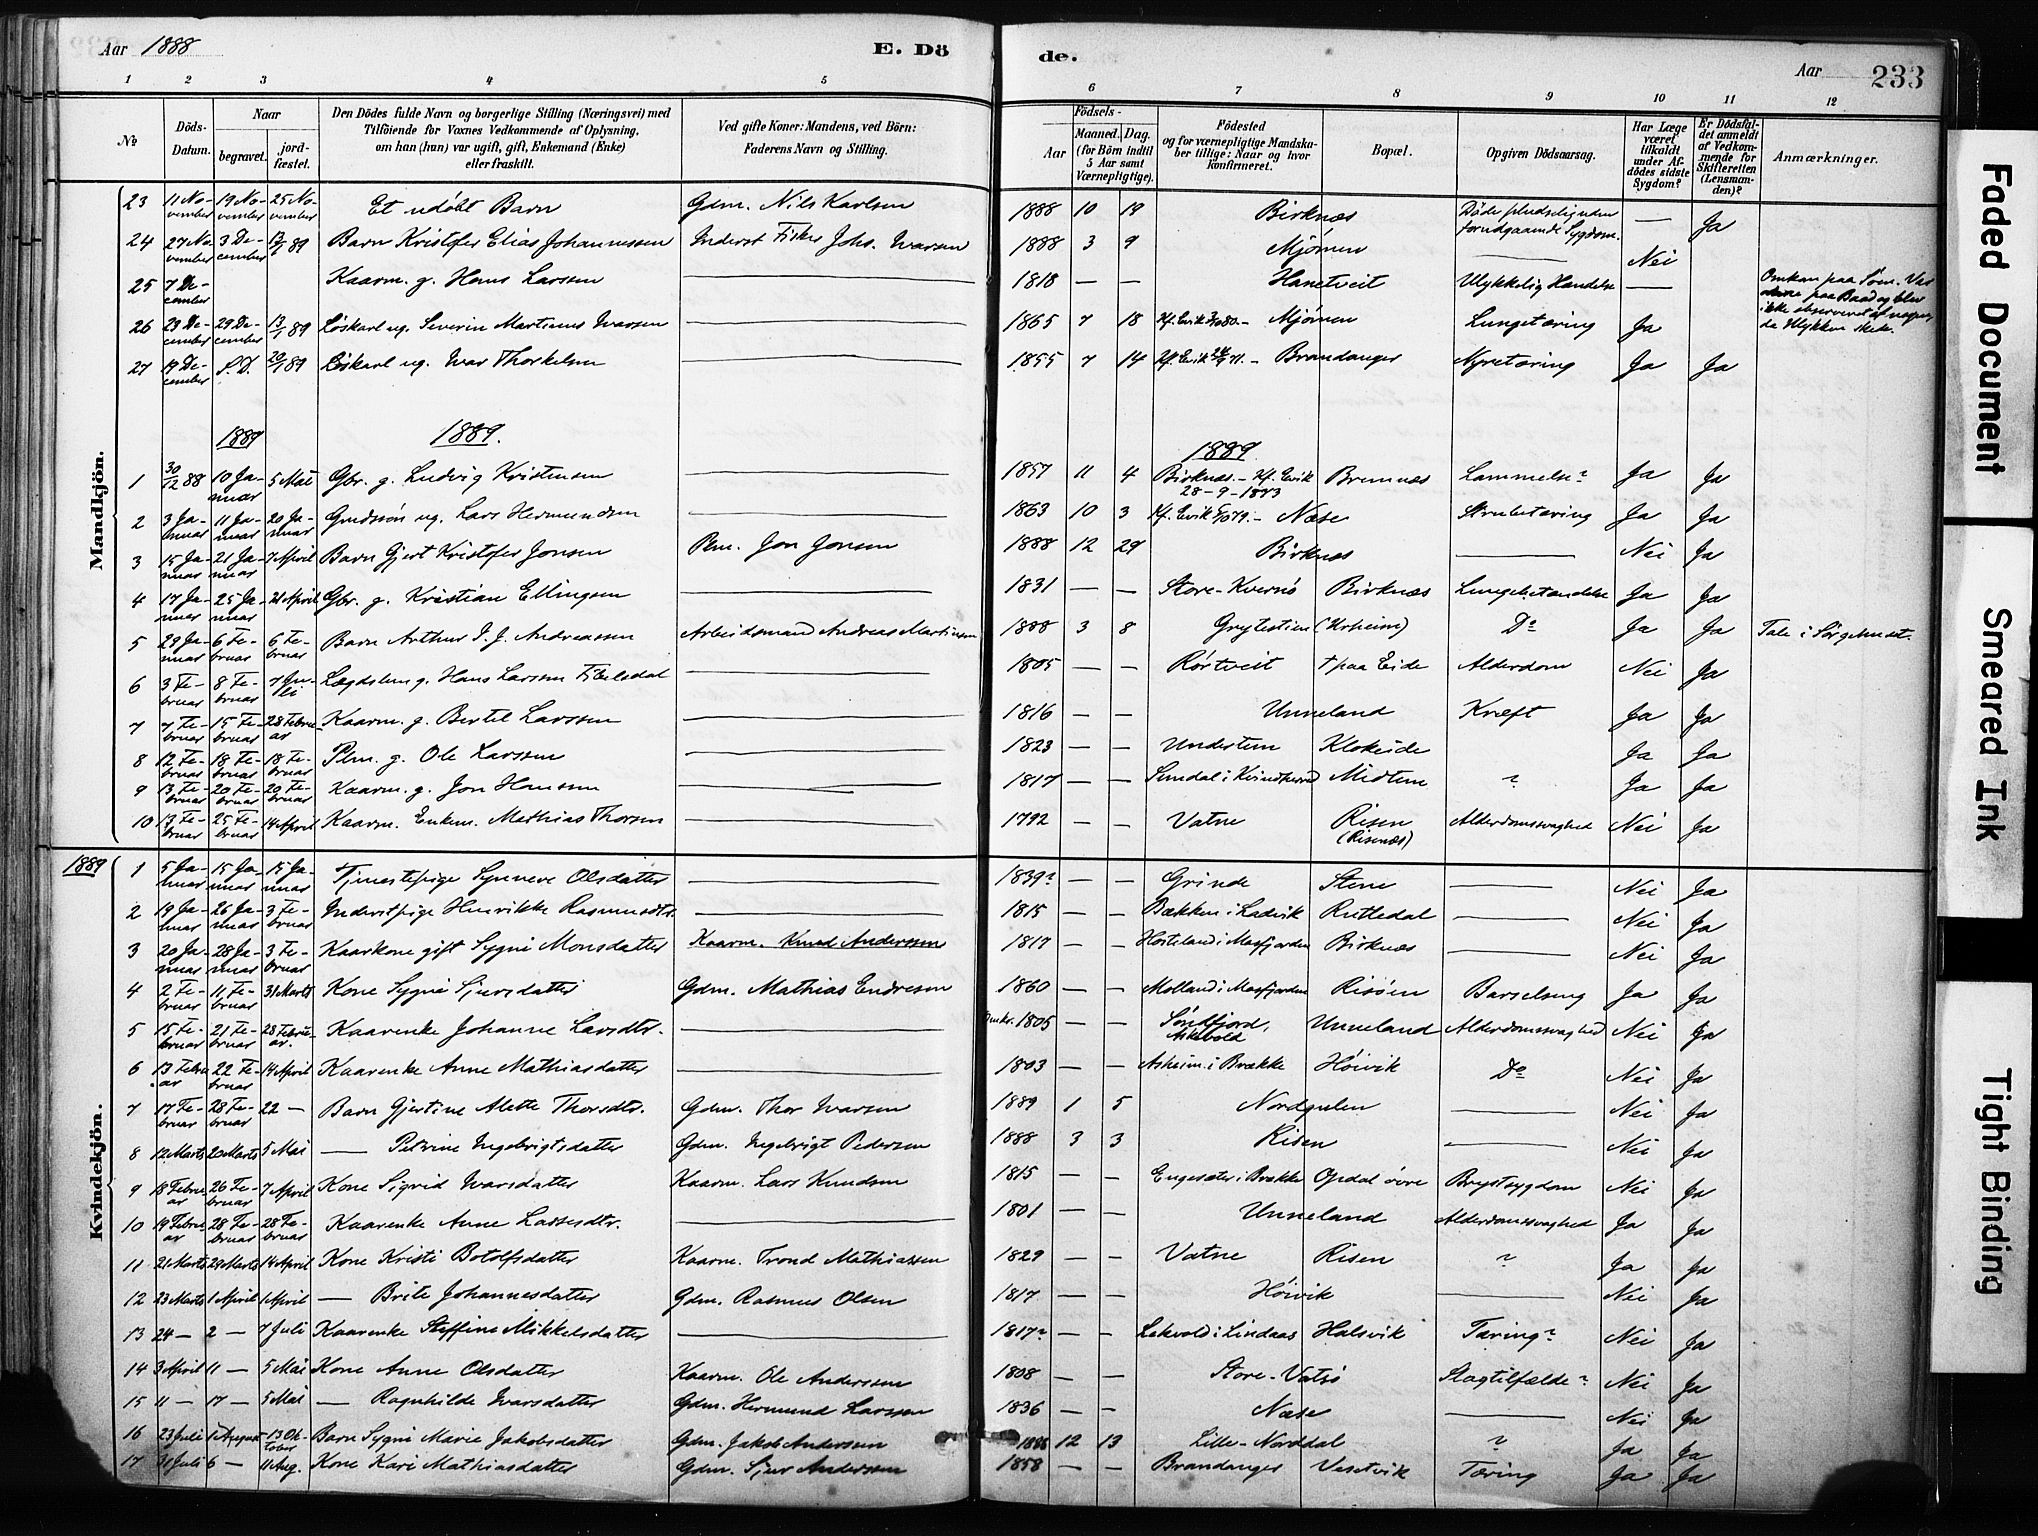 Aar 1888 E. Dö de. Aar 233
1 2 3 4 5 6 7 8 9 10 11 12
№ Döds-Datum. Naar begravet. jord-fæstet. Den Dödes fulde Navn og borgerlige Stilling (Næringsvei) med Tilföiende for Voxnes Vedkommende af Oplysning, om han (hun) var ugift, gift, Enkemand (Enke) eller fraskilt. Ved gifte Koner: Mandens, ved Börn: Faderens Navn og Stilling. Födsels- Aar Maaned. Dag. (for Börn indtil 5 Aar samt Værnepligtige). Födested og for værnepligtige Mandskaber tillige: Naar og hvor konfirmeret. Bopæl. Opgiven Dödsaarsag. Har Læge været tilkaldt under Afdödes sidste Sygdom? Er Dödsfaldet anmeldt af Vedkommende for Skifteretten (Lensmanden)? Anmærkninger.
Mandkjön.
23 11 November 19 November 25 November Et udöbt Barn Gdm. Nils Karlsen 1888 10 19 Birknæs Döde pludselig uden forudgaaende Sygdom. — Ja
24 27 November 3 December 13/1 89 Barn Kristofer Elias Johannessen Inderst Fisker Johs. Ivarsen 1888 3 9 Mjömen — Nei
25 7 December Kaarm. g. Hans Larssen — 1818 — — Hanetveit Ulykkelig Hændelse — Omkom paa Söen. Var alene paa Baad og blev ikke observeret af nogen, da Ulykken skede.
26 23 December 29 December 13/1 89 Löskarl ug. Severin Martinus Ivarsen — 1865 7 18 Kf. Evik 3/10 80. – Mjömen Lungetæring Ja
27 19 December S.D. 20/1 89 Löskarl ug. Ivar Thorkelsen — 1855 7 14 Kf. Evik 71. – Brandanger Nyretæring Ja Ja
1889 1889. 1889
1 30/12 88 10 Januar 5 Mai Gbr. g. Ludvig Kristensen — 1857 11 4 Birknæs. – Kf. Evik 28-9-1873 Bremnæs Lammelse? Ja Ja
2 3 Januar 11 Januar 20 Januar Gaardsön ug. Lars Hermundsen — 1863 10 3 Kf. Evik 5/10 79. – Næse Strubetæring Ja Ja
3 15 Januar 21 Januar 7 April Barn Gjert Kristofer Jonsen Plm. Jon Jonsen 1888 12 29 Birknæs — Nei Ja
4 17 Januar 25 Januar 21 April Gbr. g. Kristian Ellingsen — 1831 — — Store-Kversö Birknæs Lungebetændelse Ja Ja
5 29 Januar 6 Februar 6 Februar Barn Arthur I. J. Andreassen Arbeidsmand Andreas Martinsen 1888 3 8 Grytestien (Urheim) Do Ja Ja Tale i Sörgehuset.
6 3 Februar 8 Februar 7 Juli Lægdslem g. Hans Larssen Fibelsdal — 1805 — — Rörtveit † paa Eide Alderdom Nei Ja
7 7 Februar 15 Februar 28 Februar Kaarm. g. Bertel Larssen — 1816 — — Unneland Kræft Ja Ja
8 12 Februar 18 Februar 18 Februar Plm. g. Ole Larssen — 1823 — — Undertun Klokeide Ja Ja
9 13 Februar 20 Februar 20 Februar Kaarm. g. Jon Hanssen — 1817 — — Sundal i Kvindherred Midtun ? Ja Ja
10 13 Februar 25 Februar 14 April Kaarm. Enkem. Mathias Thorsen — 1792 — — Vatne Risen (Risenæs) Alderdomssvaghed Nei Ja
1889
Kvindekjön.
1 5 Januar 15 Januar 15 Januar Tjenestepige Synneve Olsdatter — 1839? — — Grinde Stene — Nei Ja
2 19 Januar 26 Januar 3 Februar Inderstpige Henrikke Rasmusdtr. — 1815 — — Bækken i Ladvik Rutledal — Nei Ja
3 20 Januar 28 Januar 3 Februar Kaarkone gift Sygni Monsdatter Kaarm. Knud Anderssen 1817 — — Hosteland i Masfjorden Birknæs — Nei Ja
4 2 Februar 11 Februar 31 Marts Kone Sygni Sjursdatter Gdm. Mathias Endresen 1860 — — Molland i Masfjorden Risöen Barselseng Ja Ja
5 15 Februar 21 Februar 28 Februar. Kaarenke Johanne Larsdtr. — Omkr. 1805 — — Söndfjord, Askevold Unneland Alderdomssvaghed Nei Ja
6 13 Februar 22 Februar 14 April Kaarenke Anne Mathiasdatter — 1803 — — Asheim i Brække Höivik Do Nei Ja
7 17 Februar 28 Februar 22 — Barn Gjertine Alette Thorsdtr. Gdm. Thor Ivarsen 1889 1 5 Nordgulen — Nei Ja
8 12 Marts 20 Marts 5 Mai — Petrine Ingebrigtsdatter Gdm. Ingebrigt Pedersen 1888 3 3 Risen — Nei Ja
9 18 Februar 26 Februar 7 April Kone Sigrid Ivarsdatter Kaarm. Lars Knudsen 1815 — — Engesæter i Brække Opdal övre Brystsygdom Nei Ja
10 19 Februar 28 Februar 28 Februar Kaarenke Anne Lassesdtr. — 1801 — — Unneland Alderdomssvaghed Ja Ja
11 21 Marts 29 Marts 14 April Kone Kristi Botolfsdatter Kaarm. Trond Mathiassen 1829 — — Vatne Risen ? Ja Ja
12 23 Marts 1 April 1 April — Brite Johannesdatter Gdm. Rasmus Olsen 1817 — — Höivik — Nei Ja
13 24 — 2 — 7 Juli Kaarenke Steffine Mikkelsdatter — 1817? — — Lekvold i Lindaas Halsvik Tæring? Nei Ja
14 3 April 11 — 5 Mai Kone Anne Olsdatter Kaarm. Ole Anderssen 1808 — — Store-Vatsö Slagtilfælde? Nei Ja
15 11 — 17 — 5 Mai — Ragnhilde Ivarsdatter Gdm. Hermund Larssen 1836 — — Næse — Nei Ja
16 23 Juli 1 August 13 Oktober Barn Sygni Marie Jakobsdatter Gdm. Jakob Andersen 1886 12 13 Lille-Norddal ? Ja Ja
17 31 Juli 6 — 11 Aug. Kone Kari Mathiasdatter Gdm. Sjur Anderssen 1858 — — Brandanger Vesetvik Tæring Ja Ja
Faded Document
Smeared Ink
Tight Binding